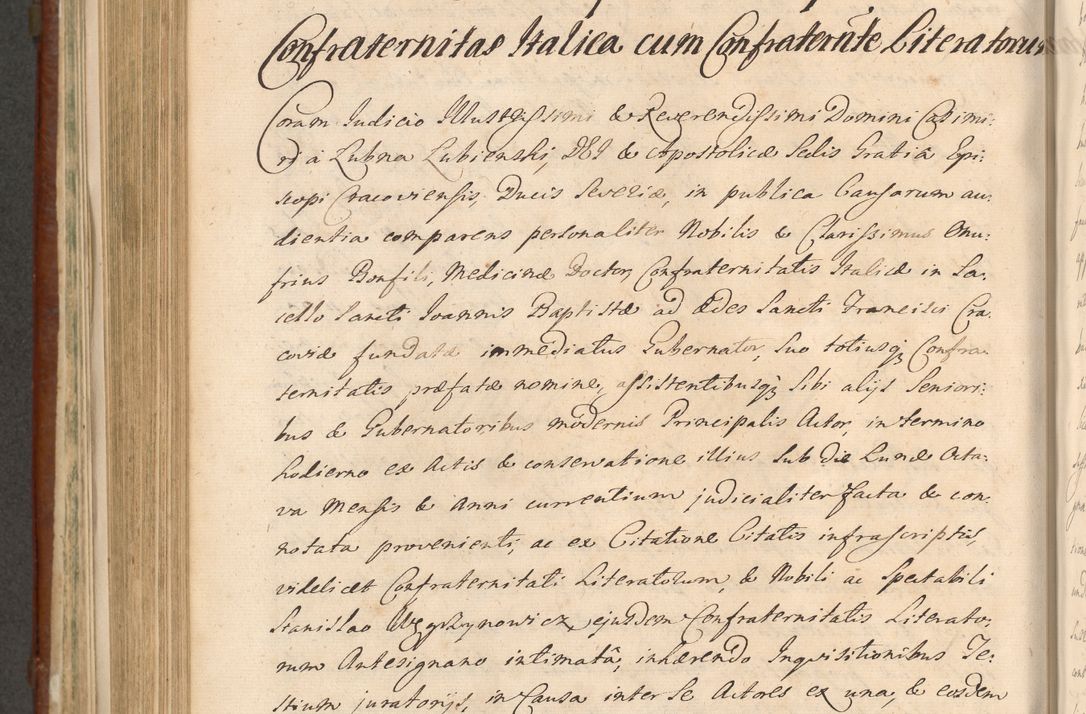 Confraternitas Italica cum Confraternte Literatorum
Coram Iudicio Illustrissimi & Reverendissimi Domini Casimi:
ri á Lubna Lubienski, DEI & Apostolicæ Sedis Gratiâ Epi:
scopi Cracoviensis, Ducis Severiæ, in publica Causarum au:
dientia comparens personaliter Nobilis & Clarissimus Onu:
frius Bonfili, Medicinæ Doctor, Confraternitatis Italicæ in Sa:
cello Sancti Ioannis Baptistæ ad Ædes Sancti Francisci Cra
coviæ fundatæ immediatus Gubernator, suo totiusq; Confra:
ternitatis præfatæ nomine, assistentibusq; sibi alijs Seniori:
bus & Gubernatoribus modernis Principalis Actor, in termino
hodierno ex Actis & conservatione illius sub die Lunæ Octa:
va Mensis & Anni currentium judicialiter facta & con:
notata provenienti, ac ex Citatione Citatis infrascriptis,
videlicet Confraternitati Literatorum, & Nobili ac Spectabili
Stanislao Węgrzynowicz, ejusdem Confraternitatis Literato:
rum Antesignano intimatâ, inhærendo Inquisitionibus Te:
stium juratorijs, in Causa inter se Actores ex una, & eosdem